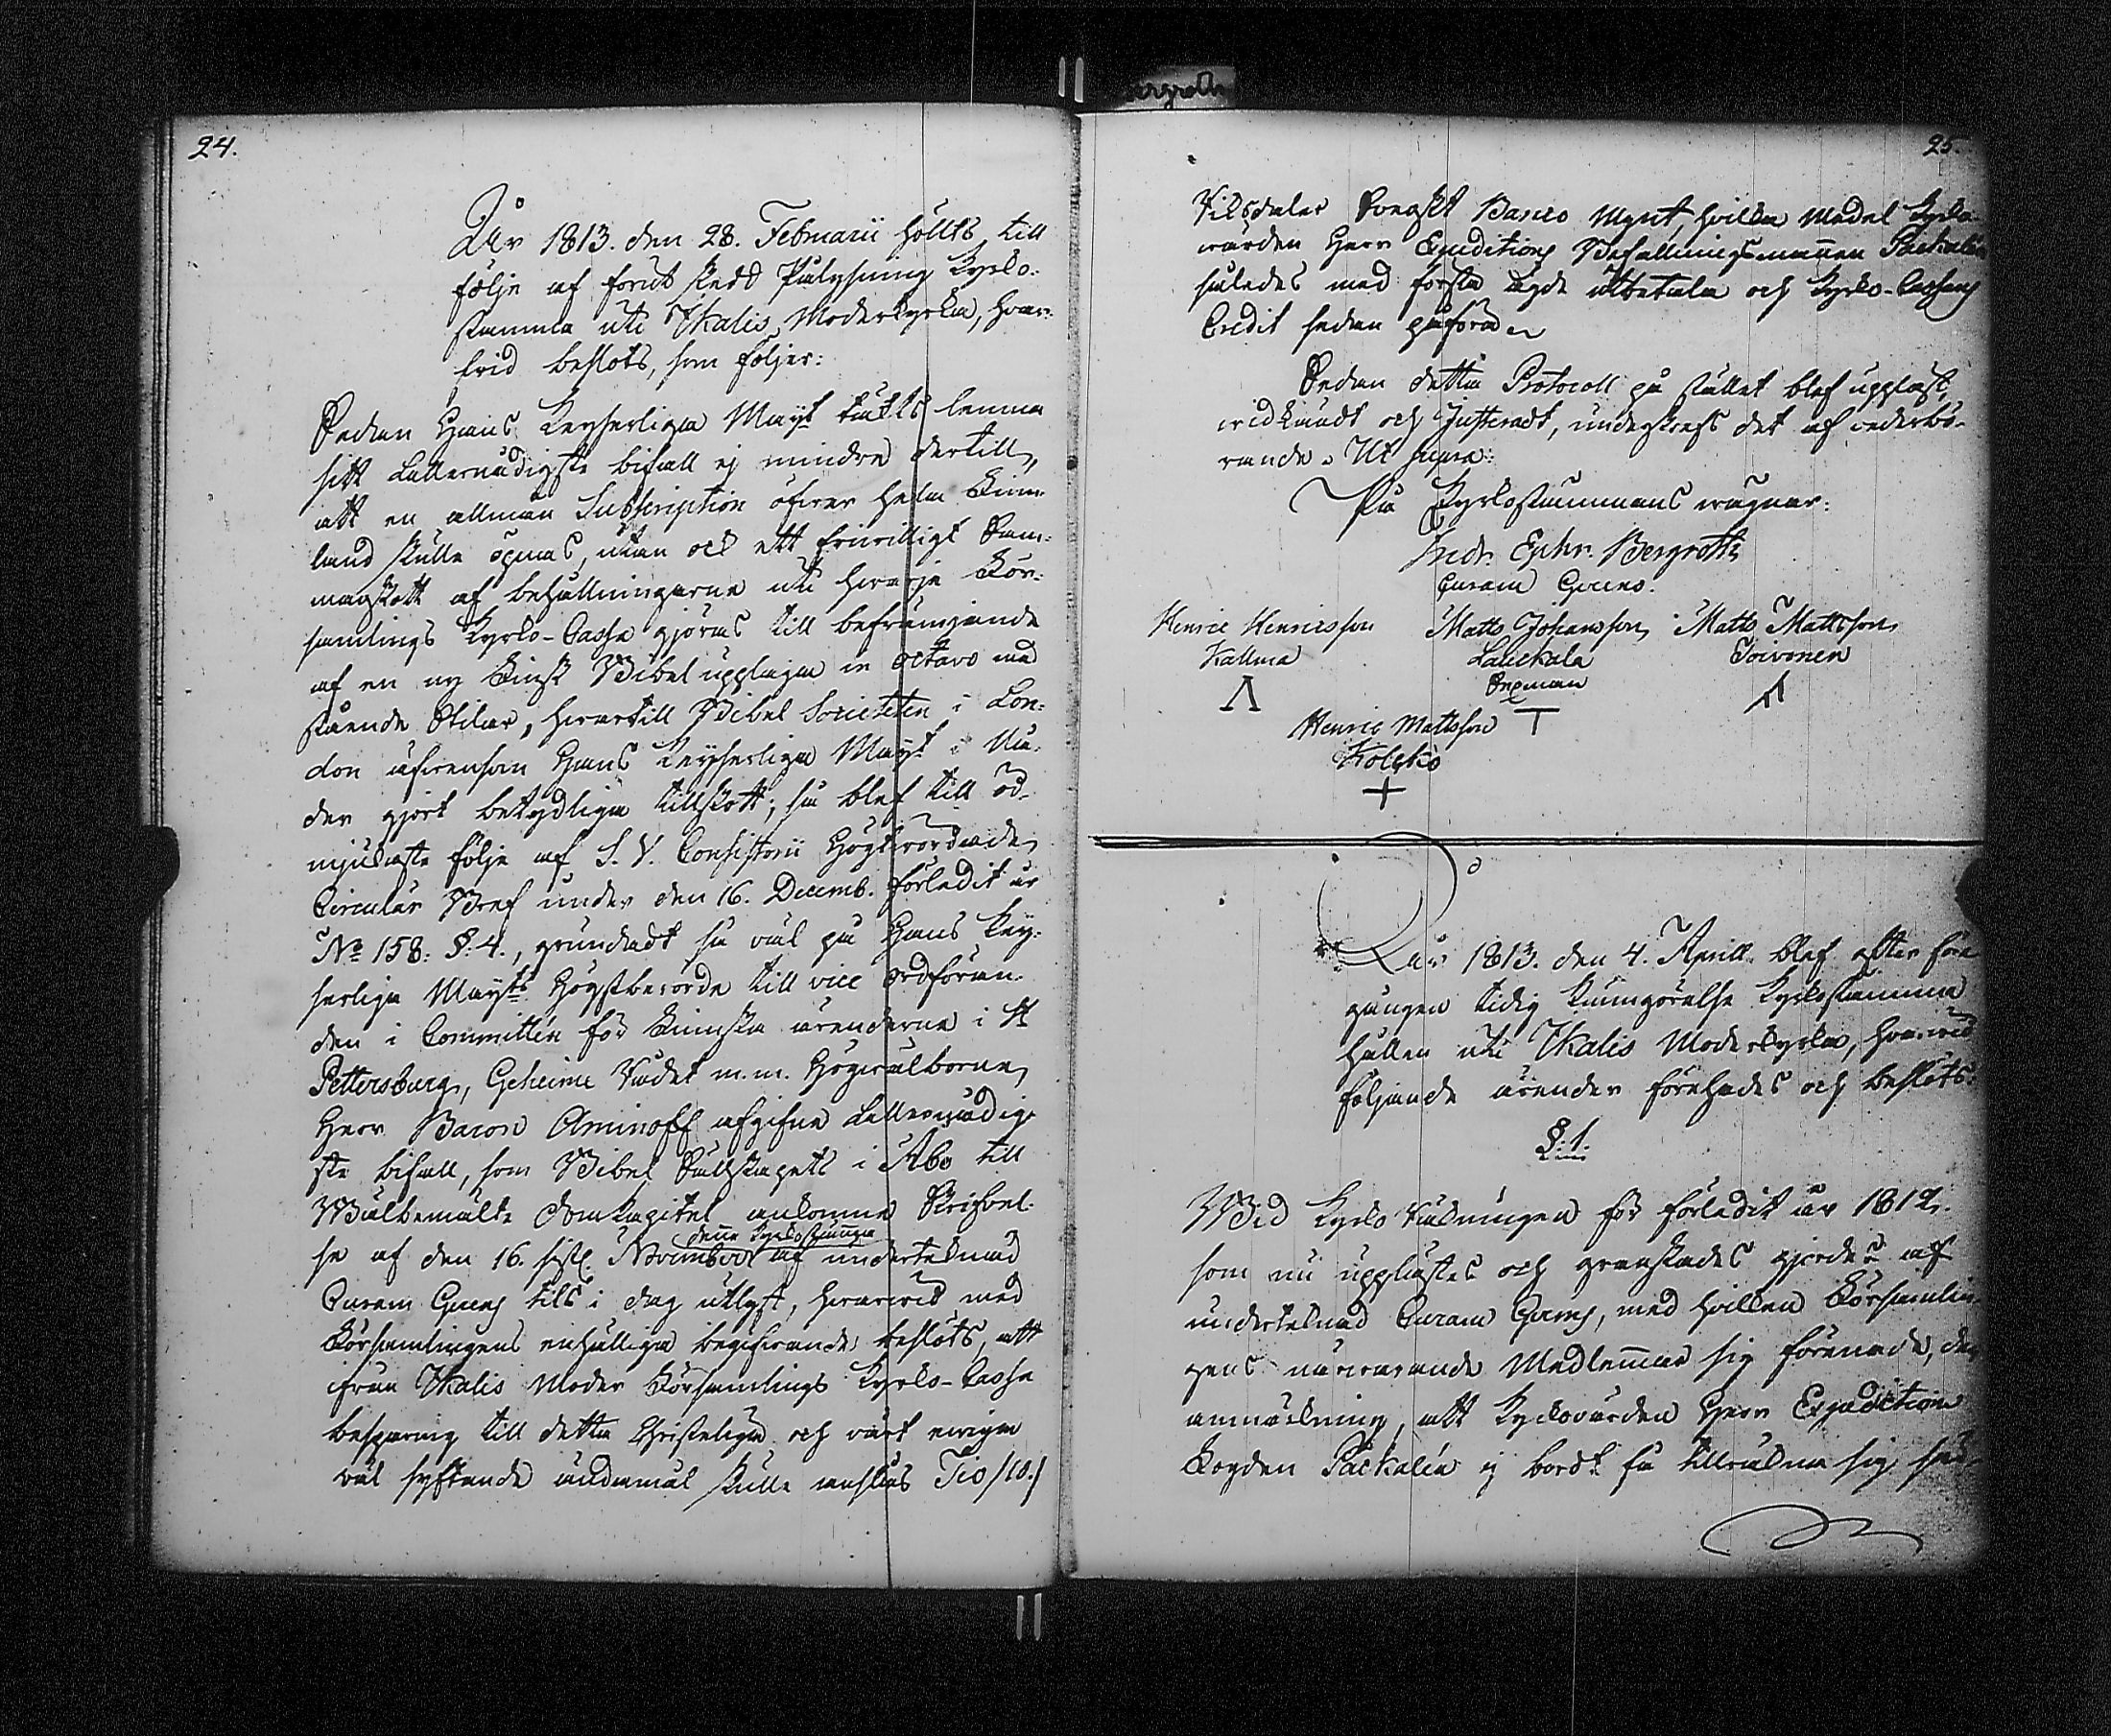 24.
År 1813. den 28. Februarii hölts till
följe af förut skedd Pålysning Kyrko-
stämma uti Ikalis Moderkyrka, hvar-
vid beslöts, som följer:
Sedan Hans Keyserliga Mayt täckts lemna
sitt Allernådigste bifall ej mindre dertill,
att en allmän Subscription öfwer hela Finn-
land skulle öpnas, utan ock ett friwilligt Sam-
manskott af behållningarne uti hwarje För-
samlings Kyrko-Cassa göras till befrämjande
af en ny Finsk Bibel upplaga in octavo med
stående Stilar, hwartill Bibel Societeten i Lon-
don äfwensom Hans Keyserliga Mayt i Nå-
der gjort betydliga tillskott; så blef till öd-
mjukaste följe af S. V. Consistorii Högtwördade
Circulär Bref under den 16. Decemb. förledit år
No 158. §. 4., grundadt så wäl på Hans Key-
serliga Mayts Högstberörde till vice Ordföran-
den i Committén för Finska ärenderne i St
Pettersburg, Geheime Rådet m.m. Högwälborne
Herr Baron Aminoff afgifne Allernådig-
ste bifall, som Bibel Sällskapets i Åbo till
Wälbemälte Domkapitel ankomne Skrifvel-
denne Kyrkostämma
se af den 16. sistl. November af undertecknad
Curam Gerens tils i dag utlyst, hwarwid med
Församlingens enhälliga begifwande beslöts, att
ifrån Ikalis Moder Församlings Kyrko-Cassa
besparing till detta Christeliga och wårt ewiga
wäl syftande ändamål skulle anslås Tio /10./
25.
Riksdaler Svenskt Banco Mynt, hvilka Medel Kyrko-
wärden Herr Expeditions Befallningsmannen Packalén
således med första ägde utbetala och Kyrko-Cassans
Credit sedan påföra
Sedan detta Protocoll på stället blef uppläst,
widkändt och Justeradt, underskrefs det af wederbö-
rande. Ut supra:
På Kyrkostämmans wägnar:
Andr. Ephr. Bergroth
Curam Gerens.
Henric Henricsson Matts Johansson Matts Mattsson
Kallma Lauckala Toivonen
Sexman
Henric Mattsson
Kolckö
År 1813. den 4. Aprill. blef efter före-
gången tidig kungörelse Kyrkostämma
hållen uti Ikalis Moderkyrka, hvarwid
följande ärender förehades och beslöts:
§. 1.
Wid Kyrko Räkningen för förledit år 1812.
som nu upplästes och granskades gjordes af
undertecknad Curam Gerens, med hvilken Församlin-
gens närwarande Medlemmar sig förenade, den
anmärkning, att Kyrkowärden Herr Expeditions
Fogden Packalén ej bordt få tillräkna sig